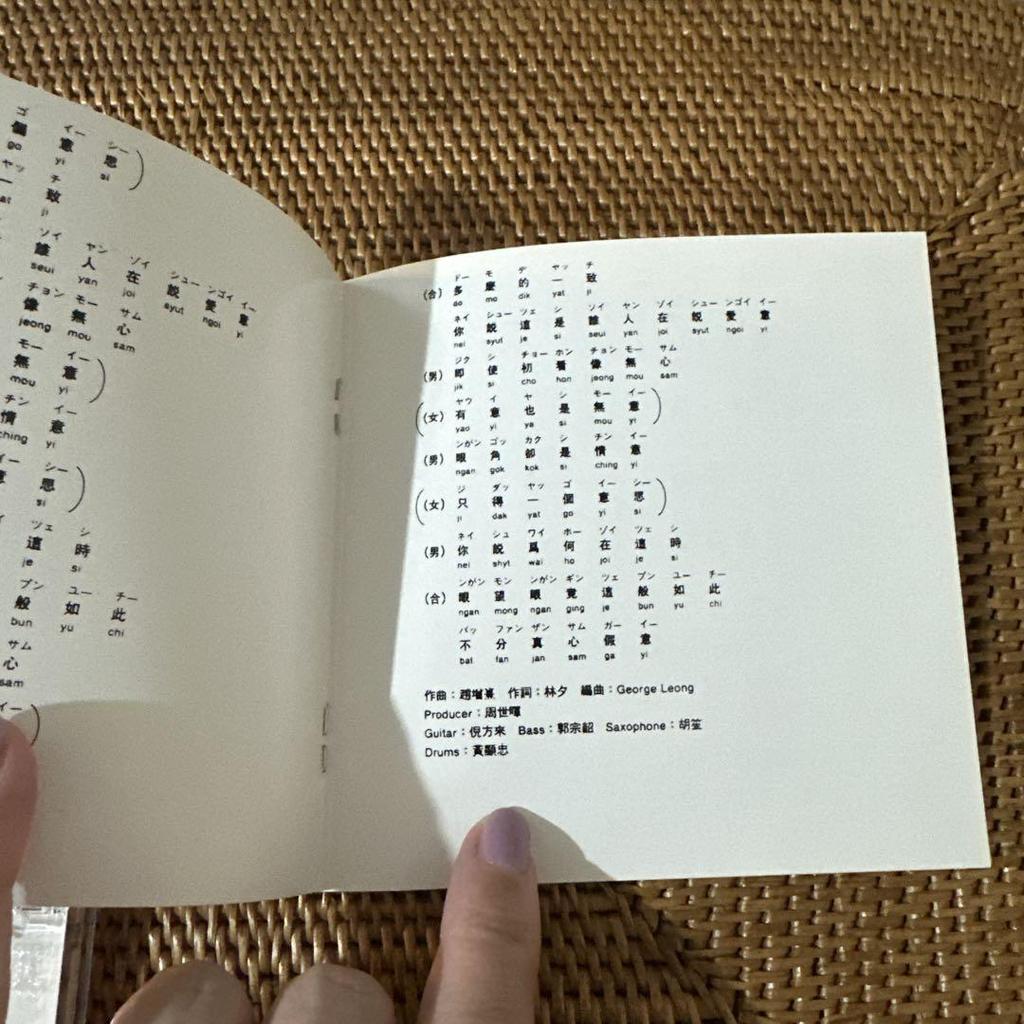 ゴ イー シー
個 意 思）
go yi si
ヤッ チ
一 致
at ji
ソイ ヤン ゾイ シュー ンゴイ イー
誰 人 在 說 愛 意
seui yan joi syut ngoi yi
チョン モー サム
像 無 心
jeong mou sam
モー イー
無 意）
mou yi
チン イー
情 意
ching yi
イー シー
意 思）
si
ツェ シ
這 時
je si
ブン ユー チー
般 如 此
bun yu chi
サム
心
sam
イー
）
ドー モ デ ヤッ チ
（合） 多 麼 的 一 致
do mo dik yat ji
ネイ シュー ツェ シ ソイ ヤン ゾイ シュー ンゴイ イー
你 說 這 是 誰 人 在 說 愛 意
nei syut je si seui yan joi syut ngoi yi
ジク シ チョー ホン チョン モー サム
（男） 即 使 初 看 像 無 心
jik si cho hon jeong mou sam
ヤウ イ ヤ シ モー イー
（（女） 有 意 也 是 無 意）
yao yi ya si mou yi
ンがン ゴッ カク シ チン イー
（男） 眼 角 卻 是 情 意
ngan gok kok si ching yi
ジ ダッ ヤッ ゴ イー シー
（（女） 只 得 一 個 意 思）
ji dak yat go yi si
ネイ シュ ワイ ホー ゾイ ツェ シ
（男） 你 說 爲 何 在 這 時
nei shyt wai ho joi je si
ンがン モン ンがン ギン ツェ ブン ユー チー
（合） 眼 望 眼 竟 這 般 如 此
ngan mong ngan ging je bun yu chi
バッ ファン ザン サム ガー イー
不 分 真 心 假 意
bat fan jan sam ga yi
作曲：趙增熹 作詞：林夕 編曲：George Leong
Producer：周世暉
Guitar：倪方來 Bass：郭宗韶 Saxophone：胡笙
Drums：黃顯忠